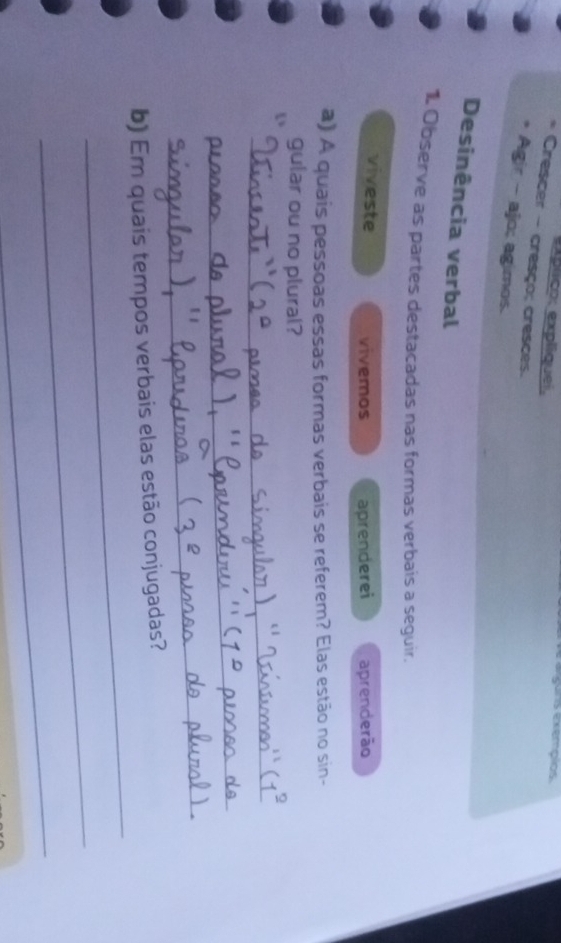 explico; expliquei.
• Crescer – cresço; cresces.
• Agir – ajo; agimos.
Desinência verbal
1. Observe as partes destacadas nas formas verbais a seguir.
viveste vivemos aprenderei aprenderão
a) A quais pessoas essas formas verbais se referem? Elas estão no sin-
gular ou no plural?
(2ª pessoa do singular), (1ª
pessoa do plural), (1ª pessoa do
singular), (3ª pessoa do plural).
b) Em quais tempos verbais elas estão conjugadas?